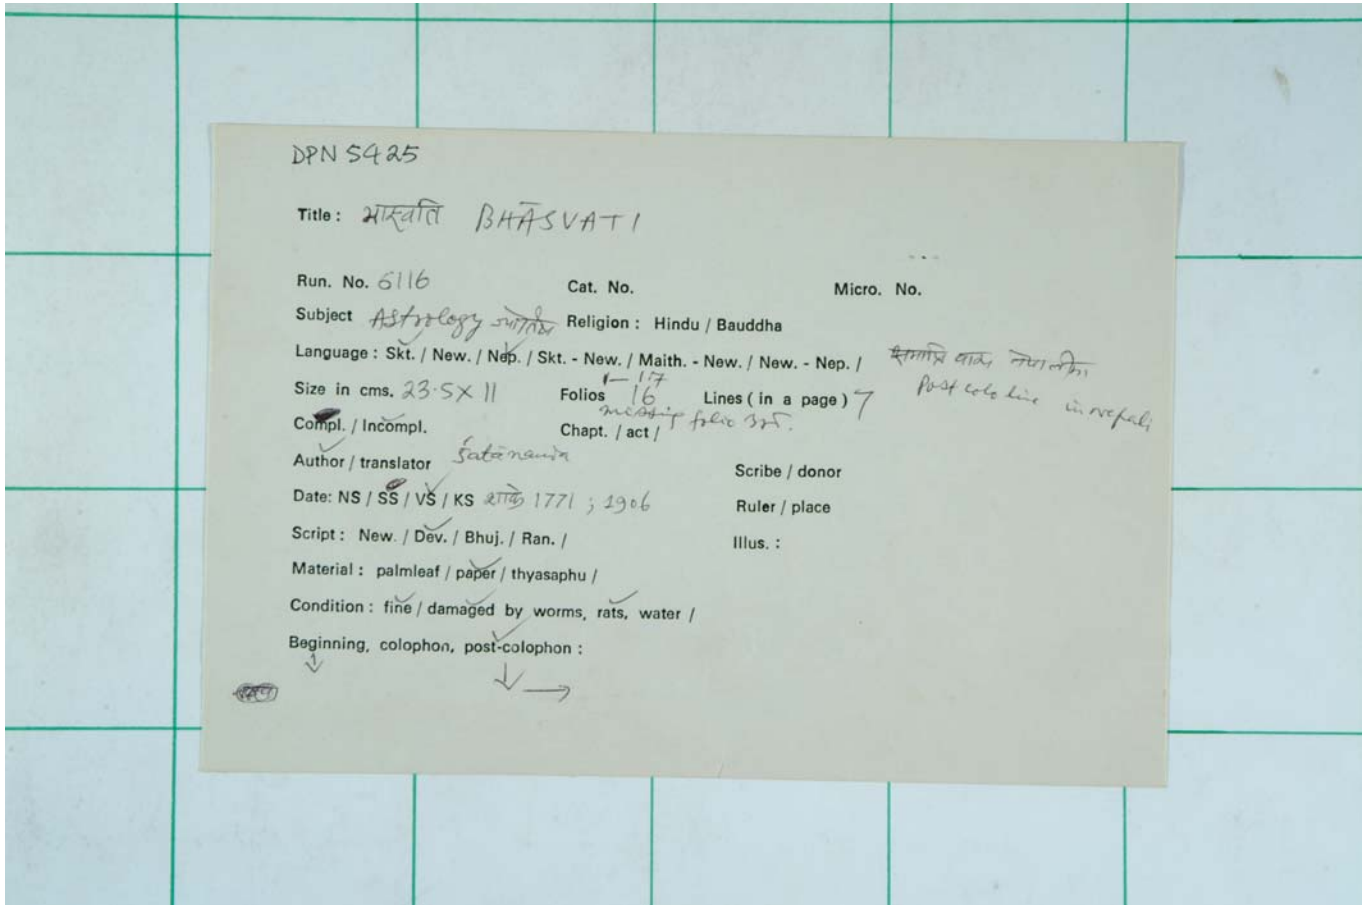 DPN 5425
Title : भास्वति BHĀSVATI
Run. No. 6116 Cat. No. Micro. No.
Subject Astrology Religion : Hindu / Bauddha
Language : Skt. / New. / Nep. / Skt. - New. / Maith. - New. / New. - Nep. /
Post colo line in nepali
1-17
Size in cms. 23.5 X 11 Folios 16 Lines ( in a page ) 7
missing folio
Compl. / Incompl. Chapt. / act /
Author / translator Śatānanda Scribe / donor
Date: NS / SS / VS / KS शाके 1771 ; 1906 Ruler / place
Script : New. / Dev. / Bhuj. / Ran. / Illus. :
Material : palmleaf / paper / thyasaphu /
Condition : fine / damaged by worms, rats, water /
Beginning, colophon, post-colophon :